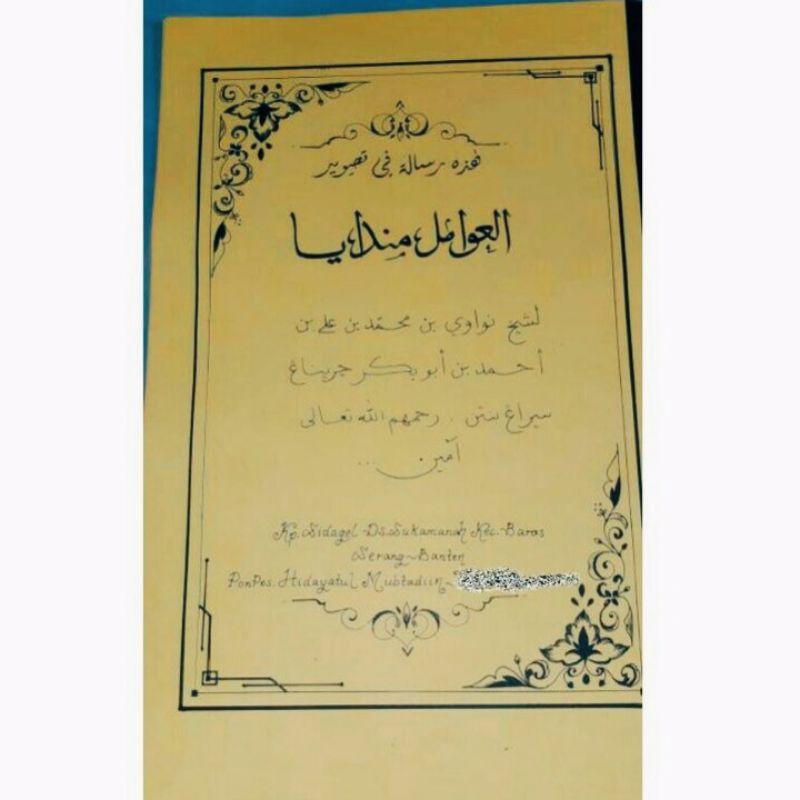 هذه رسالة في تصوير
العوامل مندايا
لشيخ نواوي بن محمد بن علي بن
أحمد بن أبو بكر جريناغ
سيراغ بنتن . رحمهم الله تعالى
آمين ...
Kp. Sidagel Ds. Sukamanah Kec. Baros
Serang~Banten
PonPes. Hidayatul Mubtadiin~